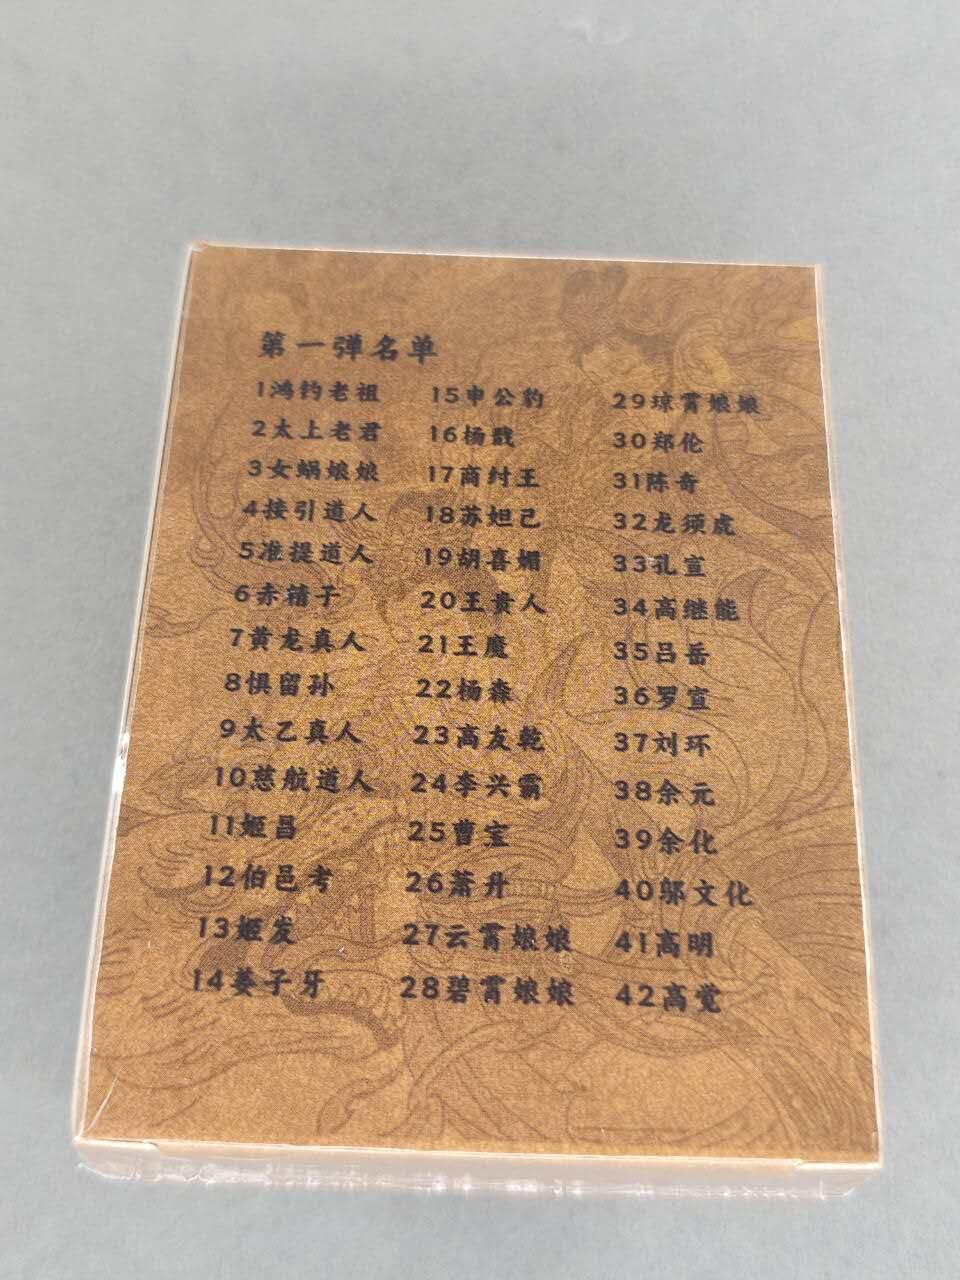 第一弹名单
1鸿钧老祖
2太上老君
3女娲娘娘
4接引道人
5准提道人
6赤精子
7黄龙真人
8惧留孙
9太乙真人
10慈航道人
11姬昌
12伯邑考
13姬发
14姜子牙
15申公豹
16杨戬
17商纣王
18苏妲己
19胡喜媚
20王贵人
21王魔
22杨森
23高友乾
24李兴霸
25曹宝
26萧升
27云霄娘娘
28碧霄娘娘
29琼霄娘娘
30郑伦
31陈奇
32龙须虎
33孔宣
34高继能
35吕岳
36罗宣
37刘环
38余元
39余化
40邬文化
41高明
42高觉